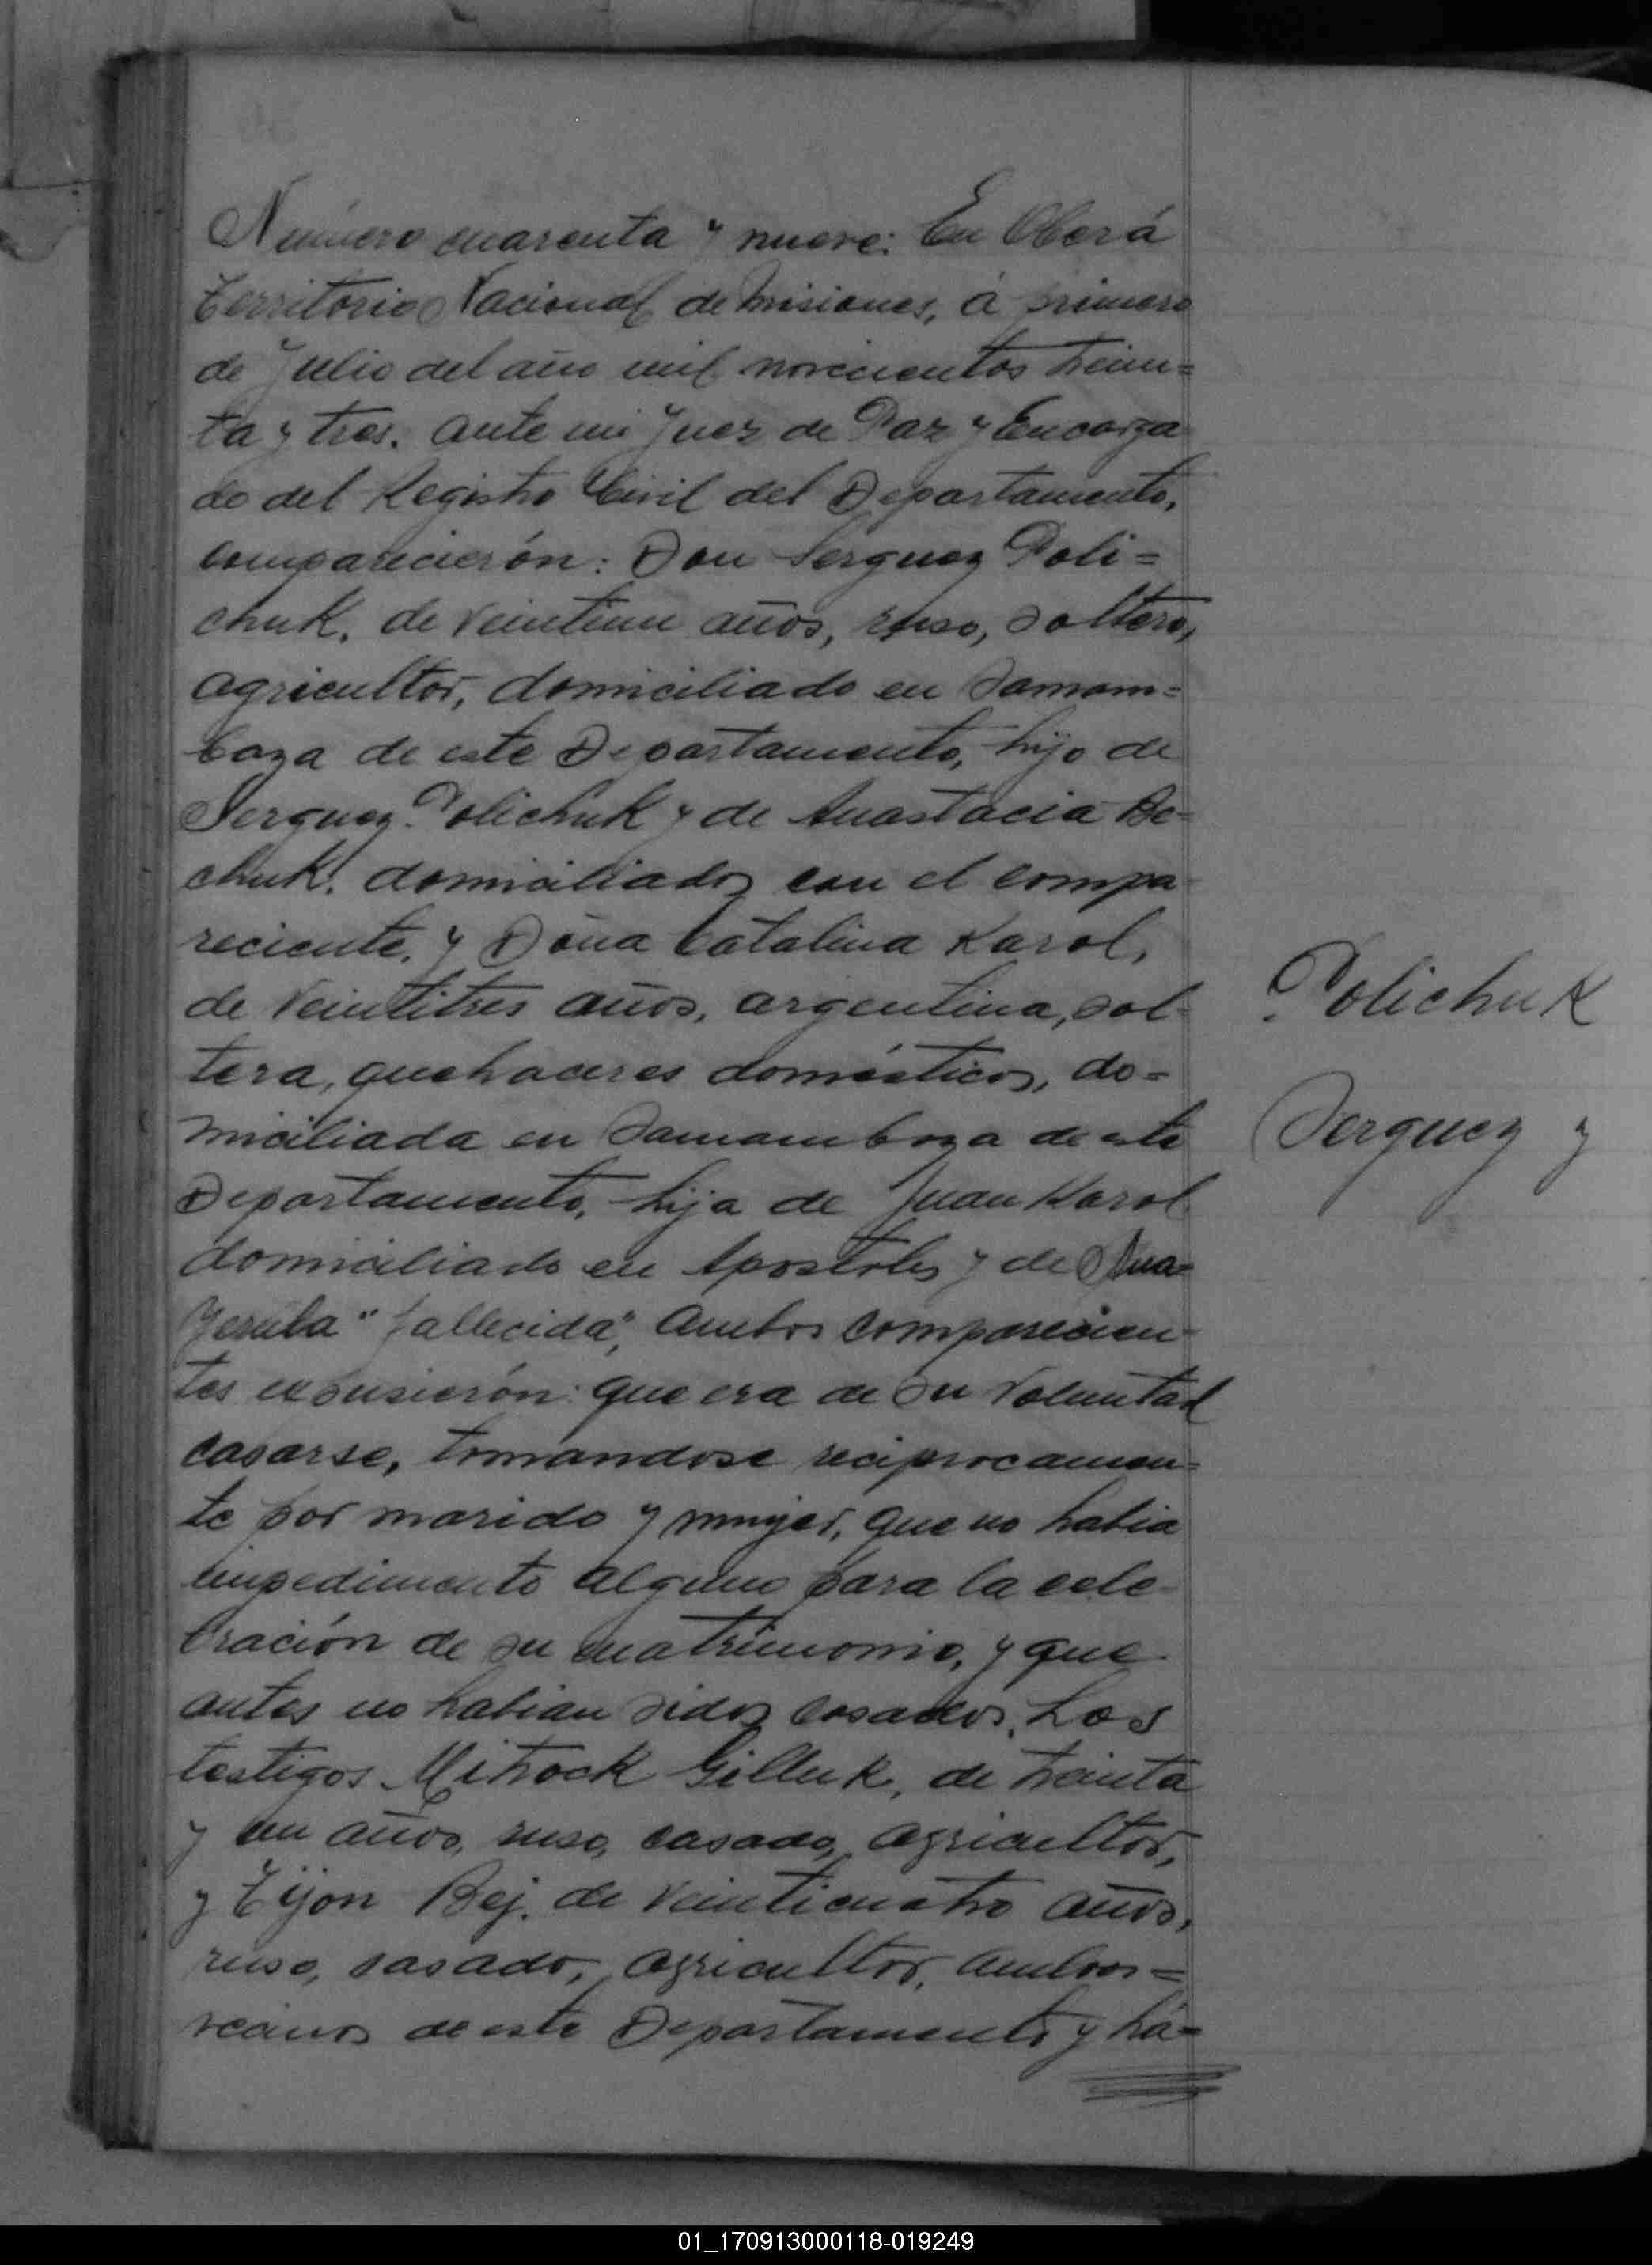 Número cuarenta y nueve: En Oberá
Territorio Nacional de Misiones, á primero
de Julio del año mil novecientos trein=
ta y tres. ante mi Juez de Paz y Encarga
do del Registro Civil del Departamento,
comparecierón: Don Serguey Poli=
chuk, de veintiun años, ruso, soltero,
agricultor, domiciliado en Samam=
baya de este Departamento, hijo de
Serguey Polichuk y de Anastacia Be=
chuk, domiciliados con el compa
reciente, y Doña Catalina Karol,
de veintitres años, argentina, sol-
tera, quehaceres domésticos, do=
miciliada en Samambaya de este
Departamento, hija de Juan Karol
domiciliado en Apostoles y de Ana
"fallecida", Ambos comparecien=
tes expusierón: que era de su voluntad
casarse, tomandose reciprocamen=
te por marido y mujer, que no habia
impedimento alguno para la cele
bración de su matrimonio, y que
antes no habian sidos casados. Los
testigos Mitrock Gilluk, de treinta
y un años, ruso, casado, agricultor,
y Tijon Bej. de veinticuatro años,
ruso, casado, agricultor, ambos=
vecinos de este Departamento y há=
Polichuk
Serguey y
01_170913000118-019249